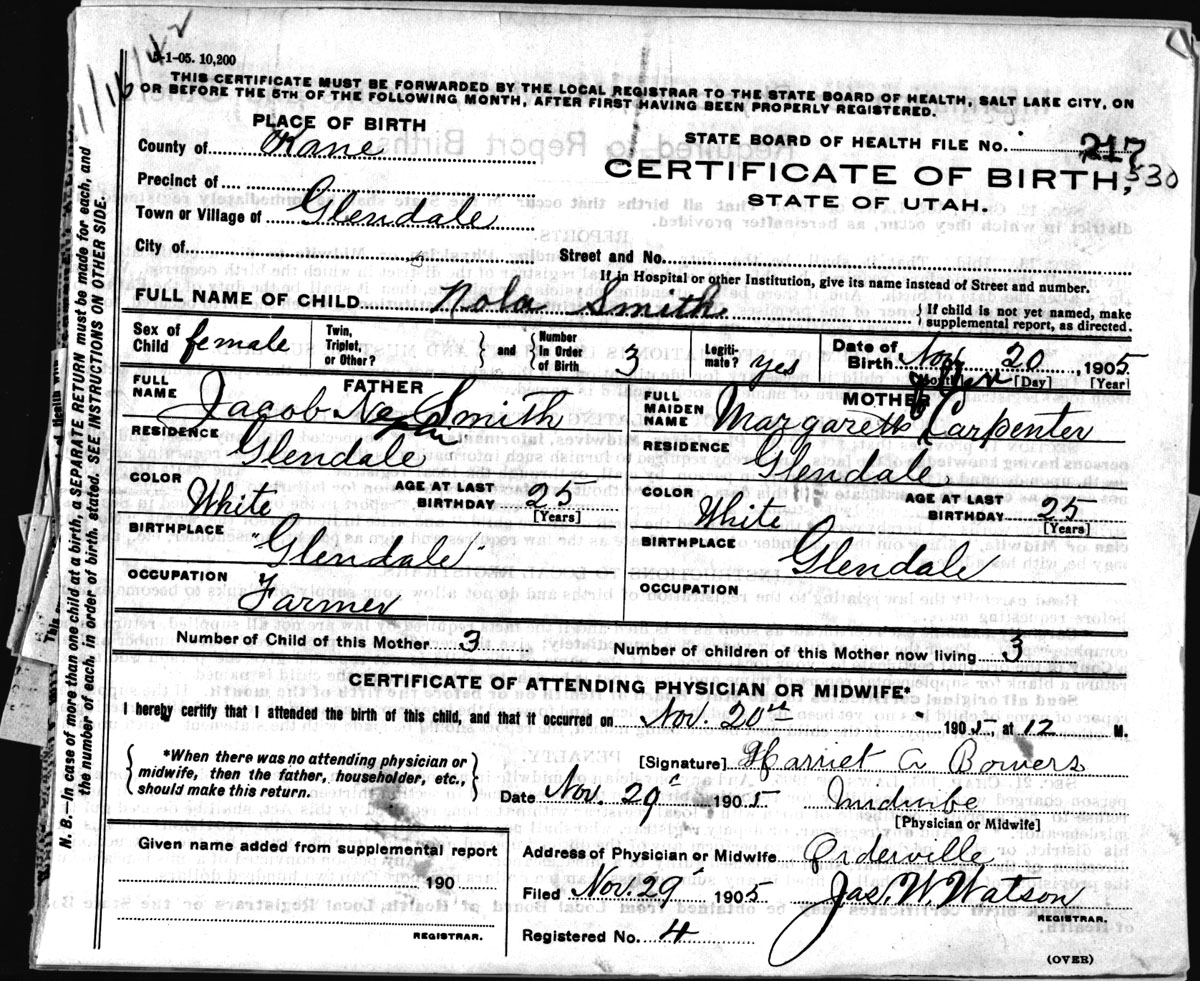 5-1-05. 10,200
THIS CERTIFICATE MUST BE FORWARDED BY THE LOCAL REGISTRAR TO THE STATE BOARD OF HEALTH, SALT LAKE CITY, ON
OR BEFORE THE 5TH OF THE FOLLOWING MONTH, AFTER FIRST HAVING BEEN PROPERLY REGISTERED.
PLACE OF BIRTH
County of Kane
Precinct of
Town or Village of Glendale
City of
STATE BOARD OF HEALTH FILE No. 217
530
CERTIFICATE OF BIRTH,
STATE OF UTAH.
Street and No.
If in Hospital or other Institution, give its name instead of Street and number.
FULL NAME OF CHILD Nola Smith
{ If child is not yet named, make
supplemental report, as directed.
Sex of Child female
Twin, Triplet, or Other? } and { Number in Order of Birth 3
Legiti-mate? yes
Date of Birth Nov 20, 1905
[Month] [Day] [Year]
FATHER
FULL NAME Jacob Smith
RESIDENCE Glendale
COLOR White
AGE AT LAST BIRTHDAY 25
[Years]
BIRTHPLACE Glendale
OCCUPATION Farmer
MOTHER
FULL MAIDEN NAME Carpenter
RESIDENCE Glendale
COLOR White
AGE AT LAST BIRTHDAY 25
[Years]
BIRTHPLACE Glendale
OCCUPATION
Number of Child of this Mother 3
Number of children of this Mother now living 3
CERTIFICATE OF ATTENDING PHYSICIAN OR MIDWIFE*
I hereby certify that I attended the birth of this child, and that it occurred on Nov. 20 1905, at 12 M.
{ *When there was no attending physician or
midwife, then the father, householder, etc.,
should make this return. }
[Signature] Harriet A Bowers
Date Nov. 29 1905 Midwibe
[Physician or Midwife]
Given name added from supplemental report
190
REGISTRAR.
Address of Physician or Midwife Orderville
Filed Nov. 29 1905 Jas. W. Watson
REGISTRAR.
Registered No. 4
(OVER)
N. B.—In case of more than one child at a birth, a SEPARATE RETURN must be made for each, and
the number of each, in order of birth, stated. SEE INSTRUCTIONS ON OTHER SIDE.